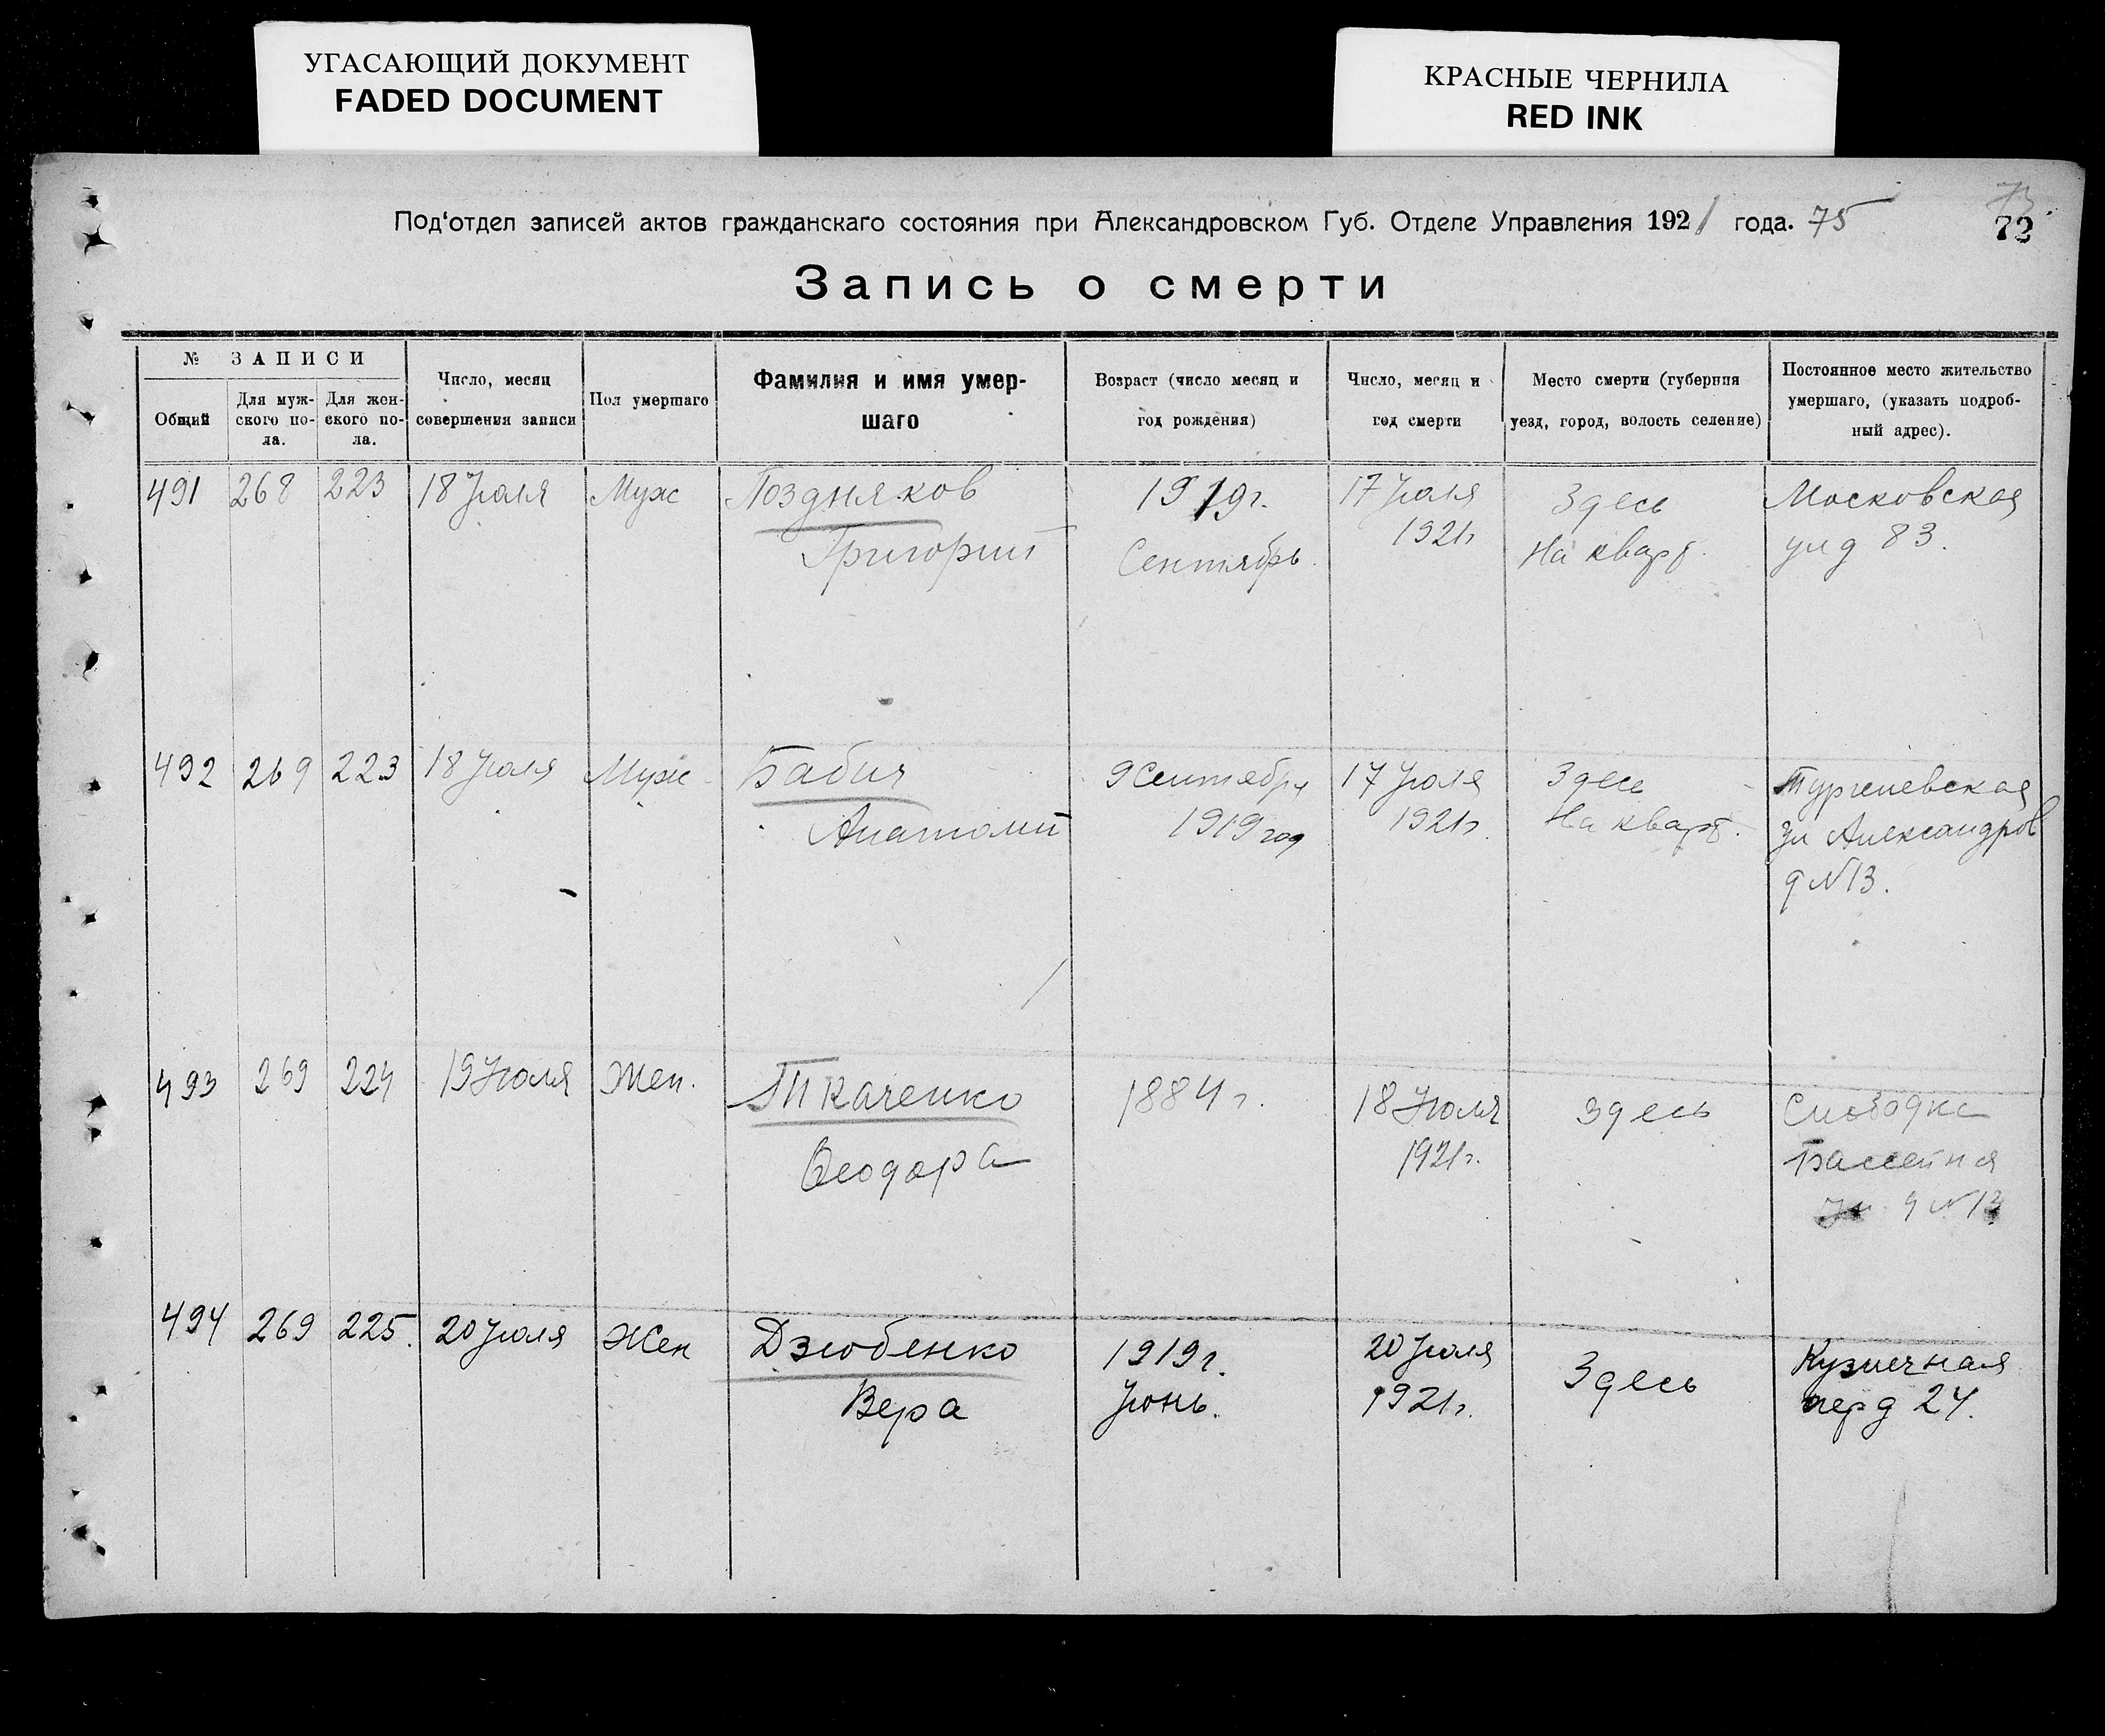 УГАСАЮЩИЙ ДОКУМЕНТ
FADED DOCUMENT
КРАСНЫЕ ЧЕРНИЛА
RED INK
Под'отдел записей актов гражданскаго состояния при Александровском Губ. Отделе Управления 1921 года. 75
73
72
Запись о смерти
№ ЗАПИСИ
Общий
Для муж-
ского по-
ла.
Для жен-
ского по-
ла.
Число, месяц
совершения записи
Пол умершаго
Фамилия и имя умер-
шаго
Возраст (число месяц и
год рождения)
Число, месяц и
год смерти
Место смерти (губерния
уезд, город, волость селение)
Постоянное место жительство
умершаго, (указать подроб-
ный адрес).
491 268 223 18 Июля Муж Поздняков 1919г. 17 Июля Здесь Московская
Григорий Сентябрь 1921г На кварт. ул д 83.
492 269 223 18 Июля Муж Бабич 9 Сентября 17 Июля Здесь Тургеневская
Анатолий 1919 год 1921г. На кварт. ул Александров
д N 13.
493 269 224 19 Июля Жен. Ткаченко 1884 г. 18 Июля Здесь Слободка
Феодора 1921г. Бассейная
ул д N 13
494 269 225. 20 Июля Жен Дзюбенко 1919г. 20 Июля Здесь Кузнечная
Вера Июнь. 1921г. пер д 24.